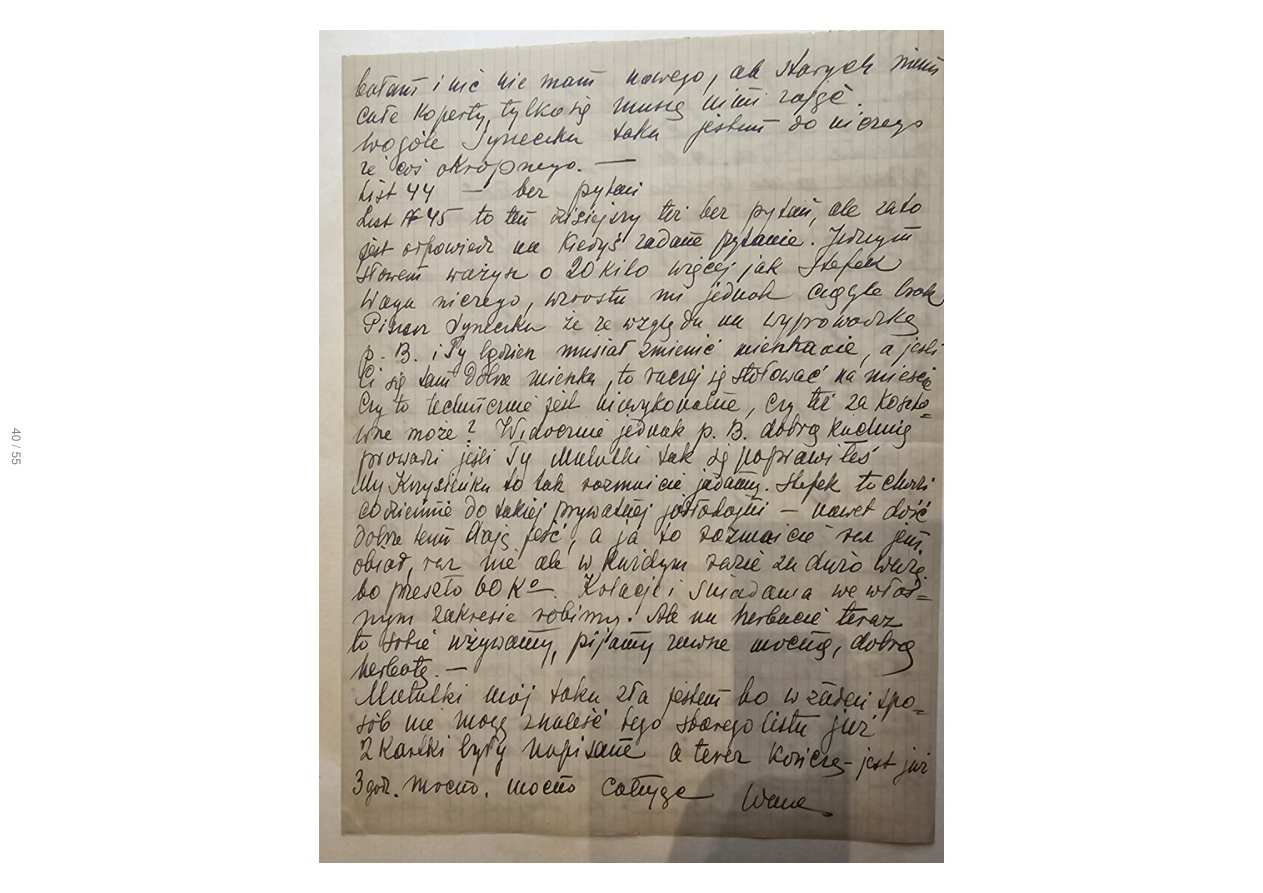 łatam i nic nie mam nowego, ale starych mam
całe koperty, tylko się muszę nimi zająć.
wogóle Syneczku taka jestem do niczego
że coś okropnego. —
List 44 — bez pytań
List № 45 to ten dzisiejszy też bez pytań, ale za to
jest odpowiedź na kiedyś zadane pytanie. Jednym
słowem ważysz o 20 kilo więcej jak Stefek
Waga niczego, wzrostu mi jednak ciągle brak
Piszesz Syneczku że ze względu na wyprowadzkę
p. B. i Ty będziesz musiał zmienić mieszkanie, a jeśli
Ci się tam dobrze mieszka, to raczej się stołować na mieście
Czy to technicznie jest niewykonalne, czy też za koszto=
wne może? Widocznie jednak p. B. dobrą kuchnię
prowadzi jeśli Ty Malutki tak się poprawiłeś
My Krzysieńku to tak rozmaicie jadamy. Stefek to chodzi
codziennie do takiej prywatnej jadłodajni — nawet dość
dobrze tam dają jeść, a ja to rozmaicie raz jem
obiad, raz nie ale w każdym razie za dużo ważę
bo przeszło 60 Ko. Kolacje i śniadania we włas=
nym zakresie robimy. Ale na herbacie teraz
to sobie używamy, pijamy zawsze mocną, dobrą
herbatę. —
Malutki mój taka zła jestem bo w żaden spo=
sób nie mogę znaleść tego starego listu już
2 kartki były napisane a teraz kończę – jest już
3 godz. mocno, mocno całuję